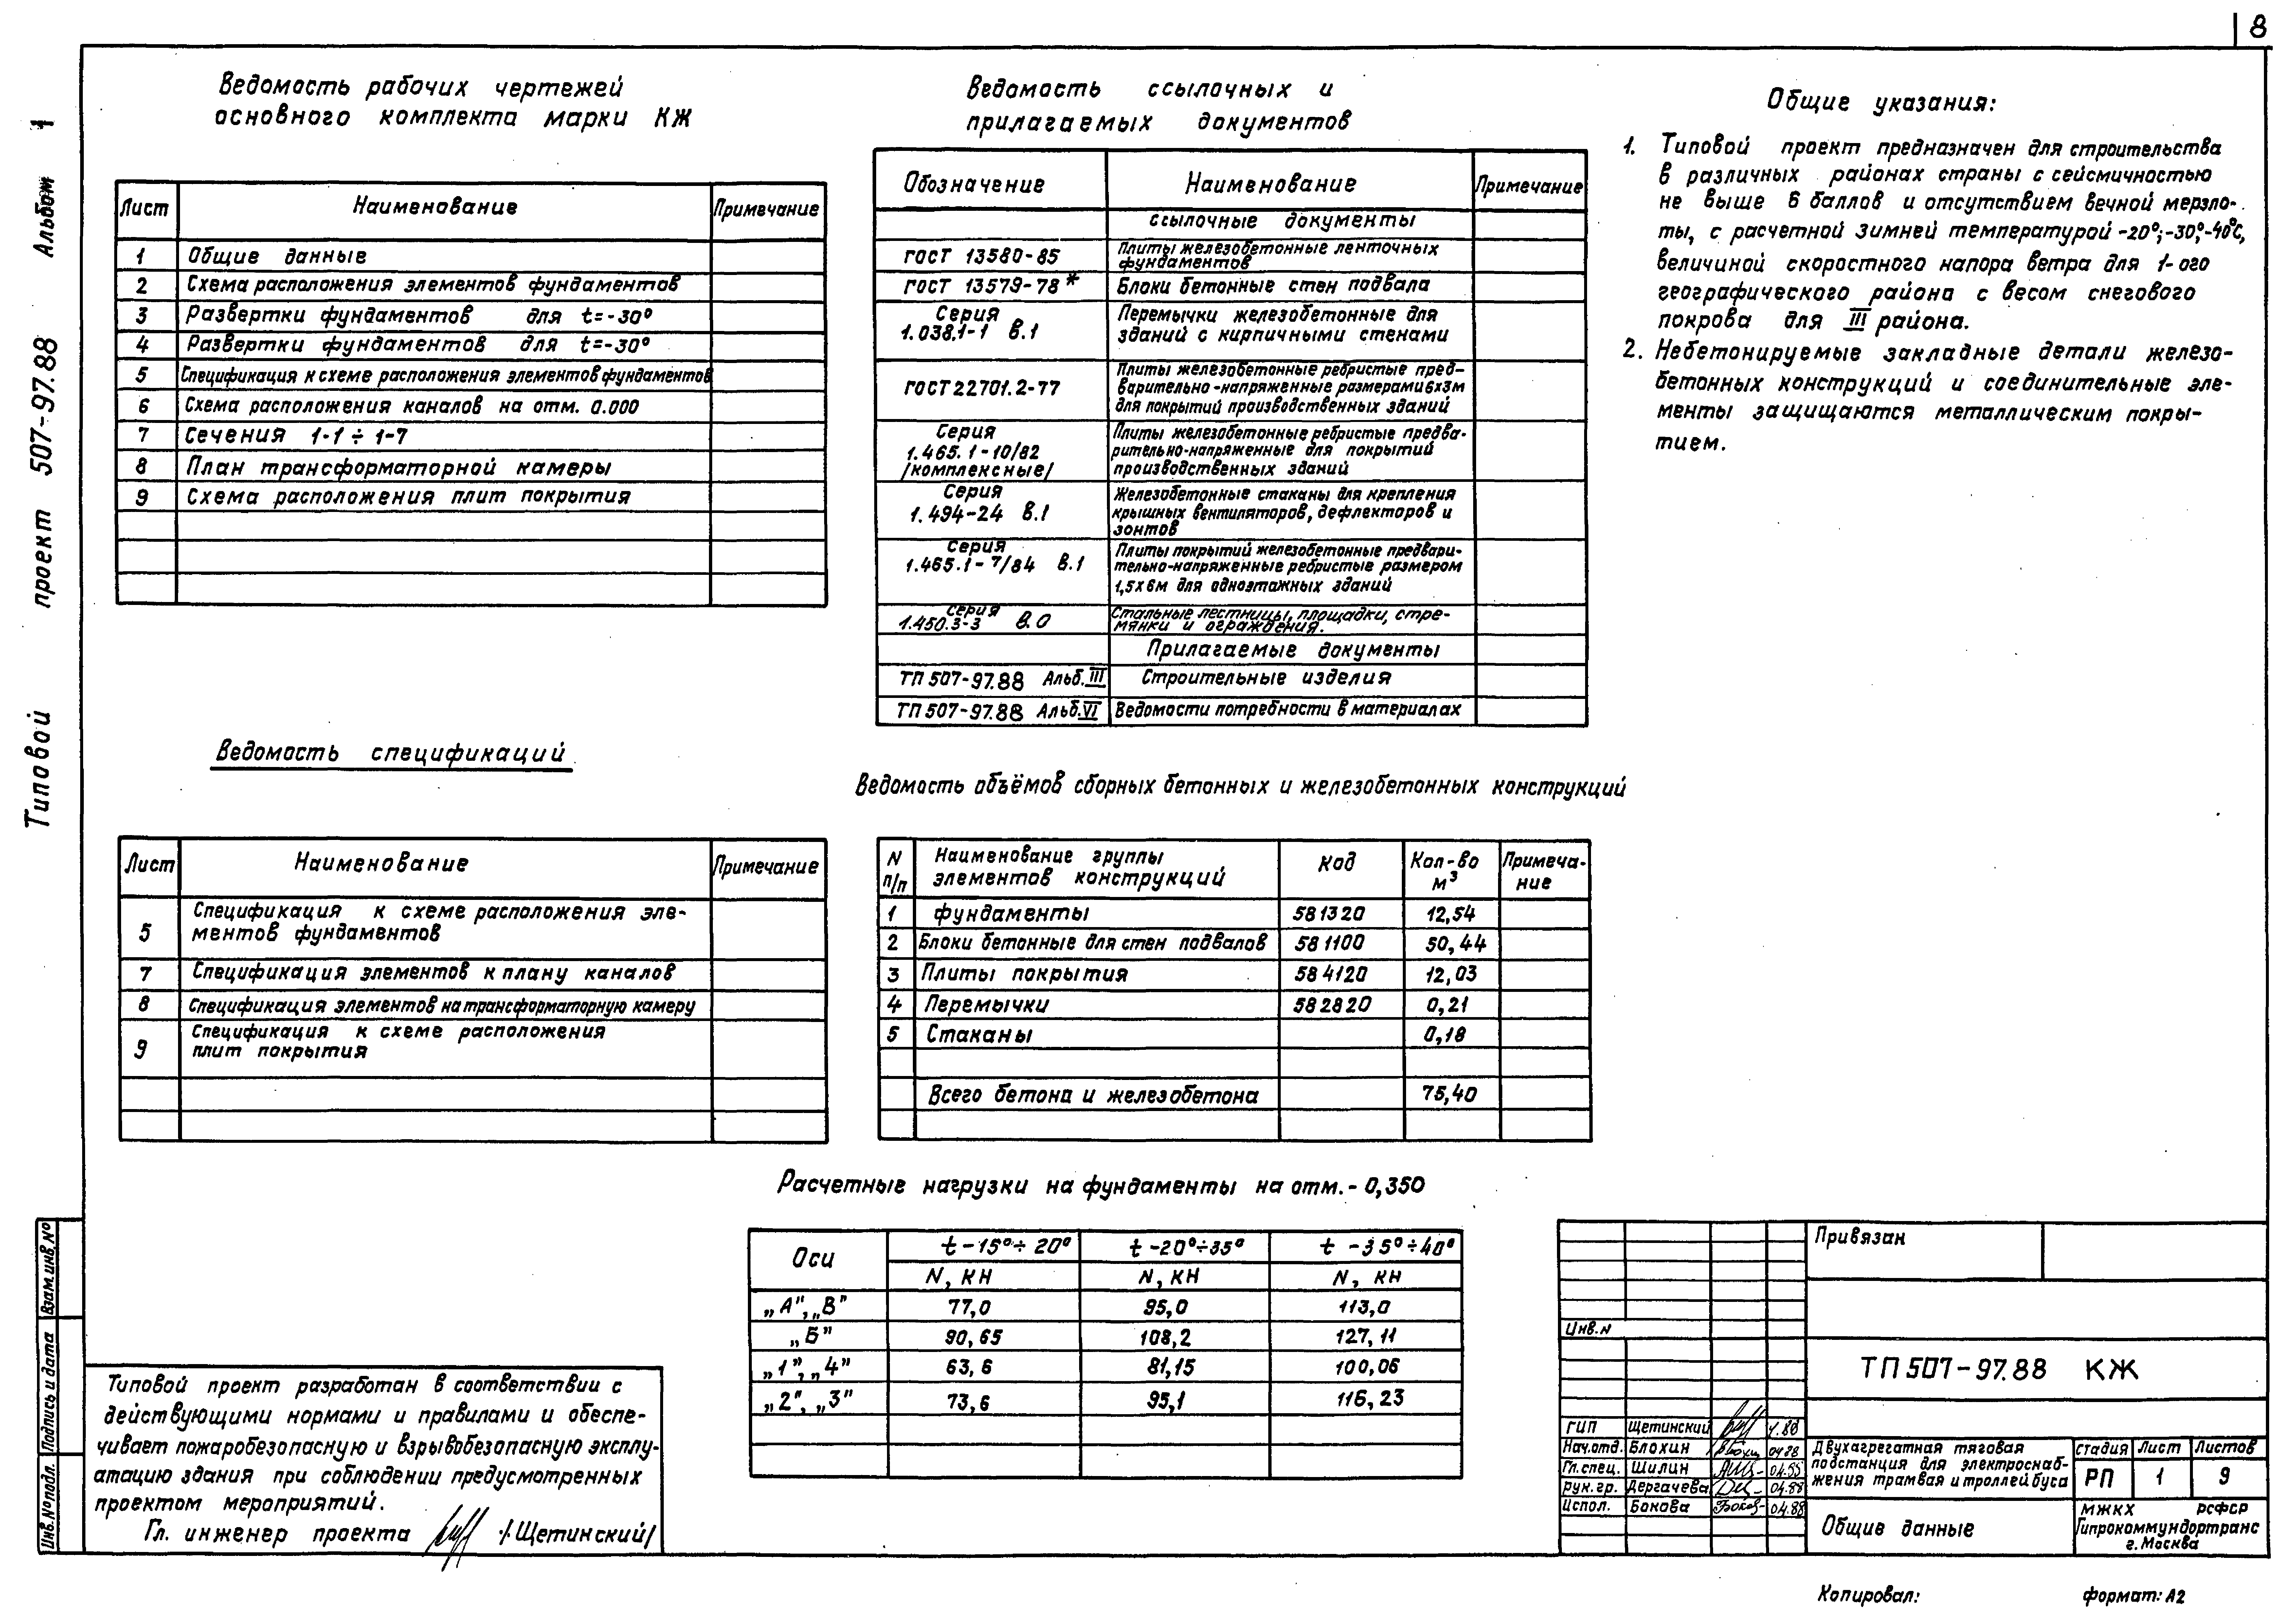 8
Типовой проект 507-97.88 Альбом 1
Ведомость рабочих чертежей
основного комплекта марки КЖ
Лист Наименование Примечание
1 Общие данные
2 Схема расположения элементов фундаментов
3 Развертки фундаментов для t=-30°
4 Развертки фундаментов для t=-30°
5 Спецификация к схеме расположения элементов фундаментов
6 Схема расположения каналов на отм. 0.000
7 Сечения 1-1 ÷ 1-7
8 План трансформаторной камеры
9 Схема расположения плит покрытия
Ведомость спецификаций
Лист Наименование Примечание
5 Спецификация к схеме расположения эле-
ментов фундаментов
7 Спецификация элементов к плану каналов
8 Спецификация элементов на трансформаторную камеру
9 Спецификация к схеме расположения
плит покрытия
Ведомость ссылочных и
прилагаемых документов
Обозначение Наименование Примечание
ссылочные документы
ГОСТ 13580-85 Плиты железобетонные ленточных
фундаментов
ГОСТ 13579-78* Блоки бетонные стен подвала
Серия
1.038.1-1 В.1 Перемычки железобетонные для
зданий с кирпичными стенами
ГОСТ 22701.2-77 Плиты железобетонные ребристые пред-
варительно-напряженные размерами 6х3м
для покрытий производственных зданий
Серия
1.465.1-10/82
/комплексные/ Плиты железобетонные ребристые предва-
рительно-напряженные для покрытий
производственных зданий
Серия
1.494-24 В.1 Железобетонные стаканы для крепления
крышных вентиляторов, дефлекторов и
зонтов
Серия
1.465.1-7/84 В.1 Плиты покрытий железобетонные предвари-
тельно-напряженные ребристые размером
1,5х6м для одноэтажных зданий
Серия
1.450.3-3 В.0 Стальные лестницы, площадки, стре-
мянки и ограждения.
Прилагаемые документы
ТП 507-97.88 Альб. III Строительные изделия
ТП 507-97.88 Альб. VI Ведомости потребности в материалах
Ведомость объёмов сборных бетонных и железобетонных конструкций
N п/п Наименование группы элементов конструкций Код Кол-во м³ Примеча-ние
1 фундаменты 581320 12,54
2 Блоки бетонные для стен подвалов 581100 50,44
3 Плиты покрытия 584120 12,03
4 Перемычки 582820 0,21
5 Стаканы 0,18
Всего бетона и железобетона 75,40
Расчетные нагрузки на фундаменты на отм. - 0,350
Оси t -15°÷ 20° t -20°÷35° t -35°÷40°
N, КН N, КН N, КН
„А", „В" 77,0 95,0 113,0
„Б" 90,65 108,2 127,11
„1", „4" 63,6 81,15 100,06
„2", „3" 73,6 95,1 116,23
Общие указания:
1. Типовой проект предназначен для строительства
в различных районах страны с сейсмичностью
не выше 6 баллов и отсутствием вечной мерзло-
ты, с расчетной зимней температурой -20°; -30°; -40°С,
величиной скоростного напора ветра для 1-ого
географического района с весом снегового
покрова для III района.
2. Небетонируемые закладные детали железо-
бетонных конструкций и соединительные эле-
менты защищаются металлическим покры-
тием.
Типовой проект разработан в соответствии с
действующими нормами и правилами и обеспе-
чивает пожаробезопасную и взрывобезопасную эксплу-
атацию здания при соблюдении предусмотренных
проектом мероприятий.
Гл. инженер проекта /Щетинский/
Взам.инв.№
Подпись и дата
Инв.№ подл.
Привязан
Инв.N
ТП 507-97.88 КЖ
ГИП Щетинский 4.88
Нач.отд. Блохин 04.88
Гл.спец. Шилин 04.88
Рук.гр. Дергачева 04.88
Испол. Бокова 04.88
Двухагрегатная тяговая
подстанция для электроснаб-
жения трамвая и троллейбуса
стадия Лист Листов
РП 1 9
Общие данные
МЖКХ РСФСР
Гипрокоммундортранс
г. Москва
Копировал: формат: А2